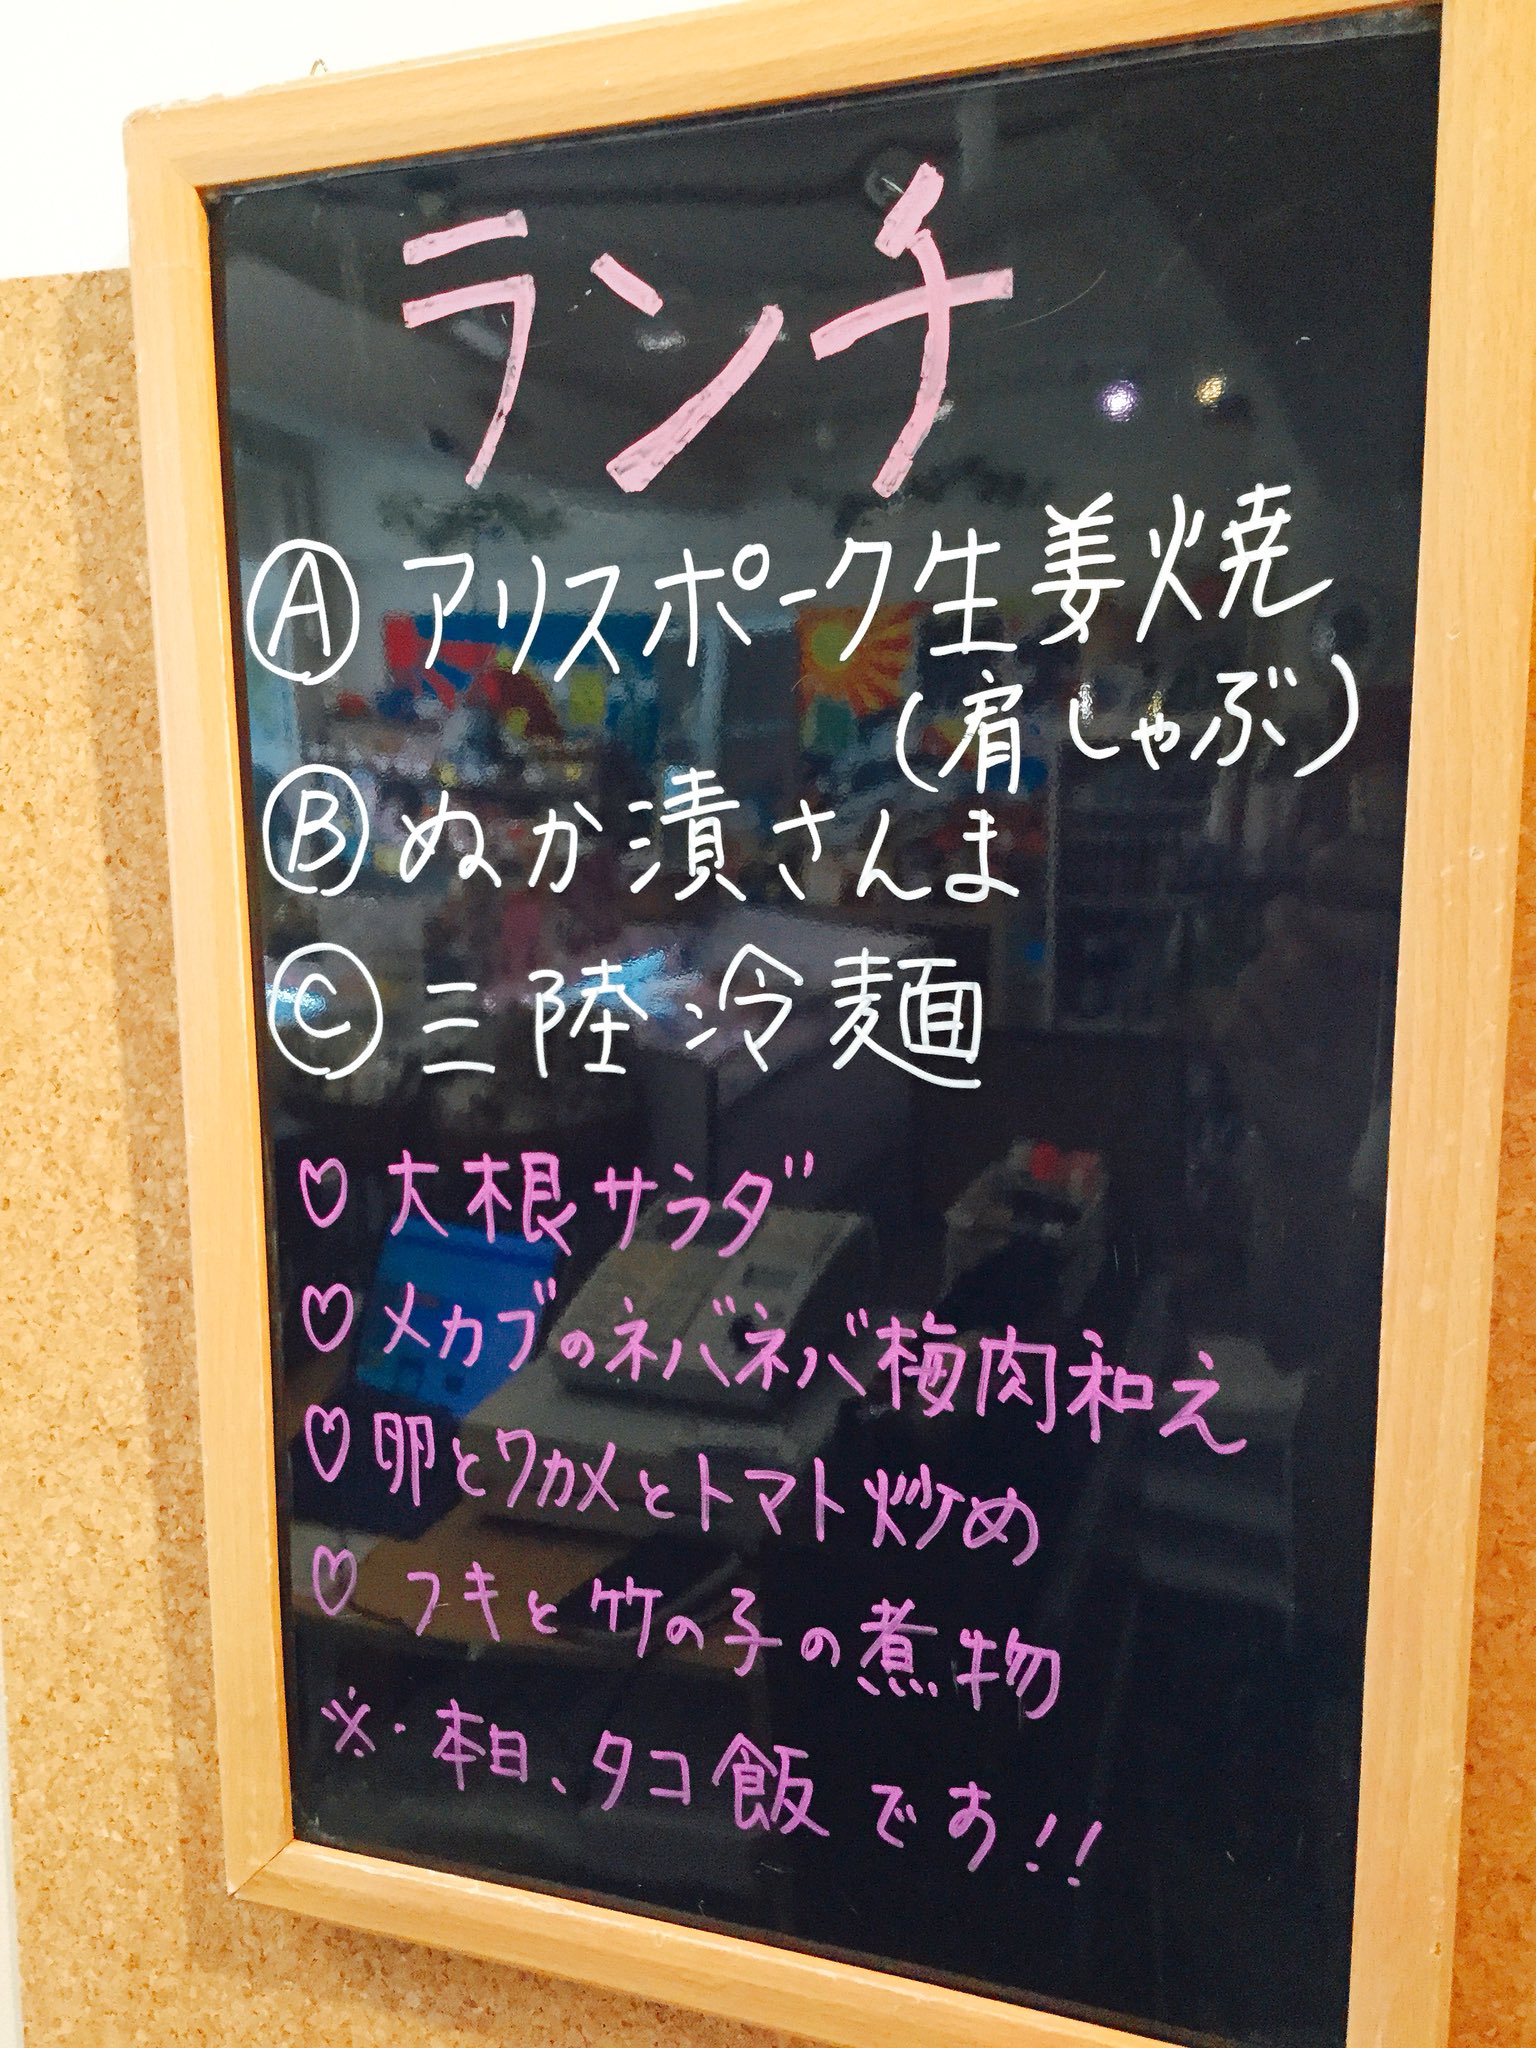 ランチ
Ⓐアリスポーク生姜焼
(肩しゃぶ)
Ⓑぬか漬さんま
Ⓒ三陸冷麺
♡大根サラダ
♡メカブのネバネバ梅肉和え
♡卵とワカメとトマト炒め
♡フキと竹の子の煮物
※・本日、タコ飯です!!